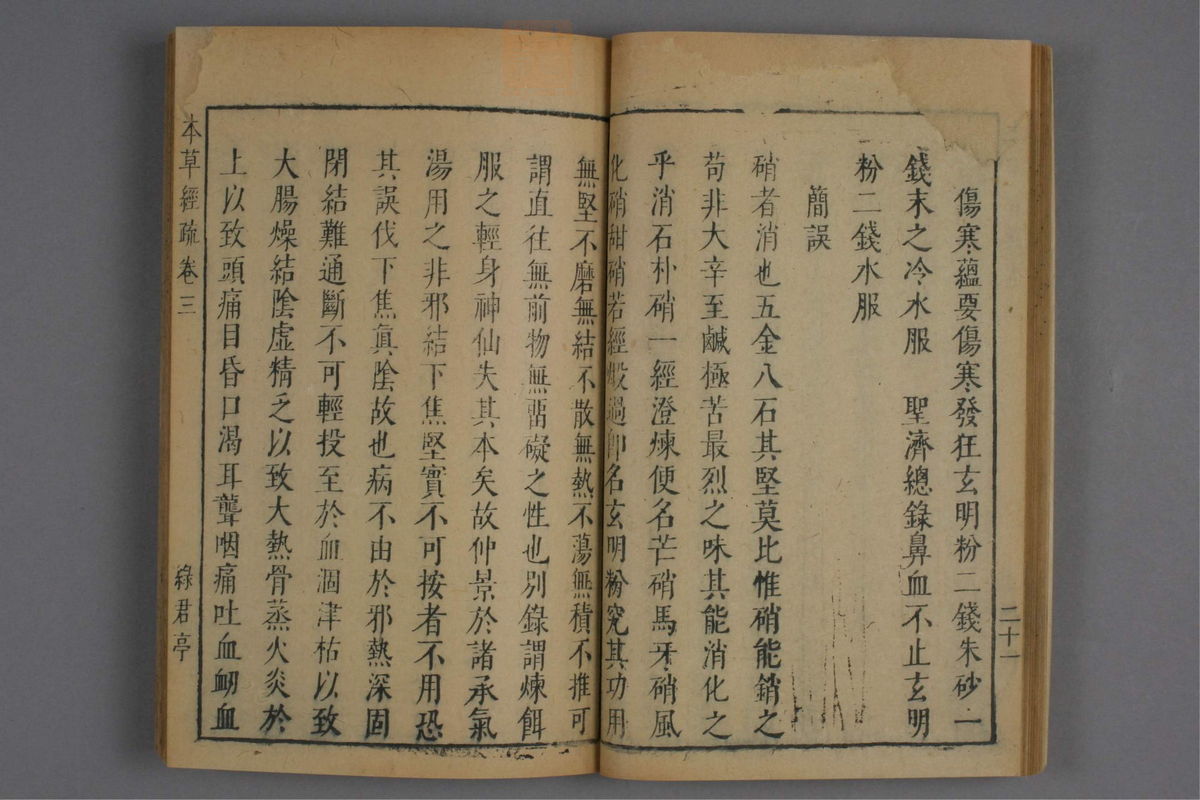 傷寒蘊要傷寒發狂玄明粉二錢朱砂一
錢末之冷水服　聖濟總錄鼻血不止玄明
粉二錢水服
簡誤
硝者消也五金八石其堅莫比惟硝能銷之
苟非大辛至鹹極苦最烈之味其能消化之
乎消石朴硝一經澄煉便名芒硝馬牙硝風
化硝甜硝若經煅過即名玄明粉究其功用
無堅不磨無結不散無熱不蕩無積不推可
謂直往無前物無畱礙之性也別錄謂煉餌
服之輕身神仙失其本矣故仲景於諸承氣
湯用之非邪結下焦堅實不可按者不用恐
其誤伐下焦真陰故也病不由於邪熱深固
閉結難通斷不可輕投至於血涸津枯以致
大腸燥結陰虛精乏以致大熱骨蒸火炎於
上以致頭痛目昏口渴耳聾咽痛吐血衂血
本草經疏 卷三
綠君亭
二十一